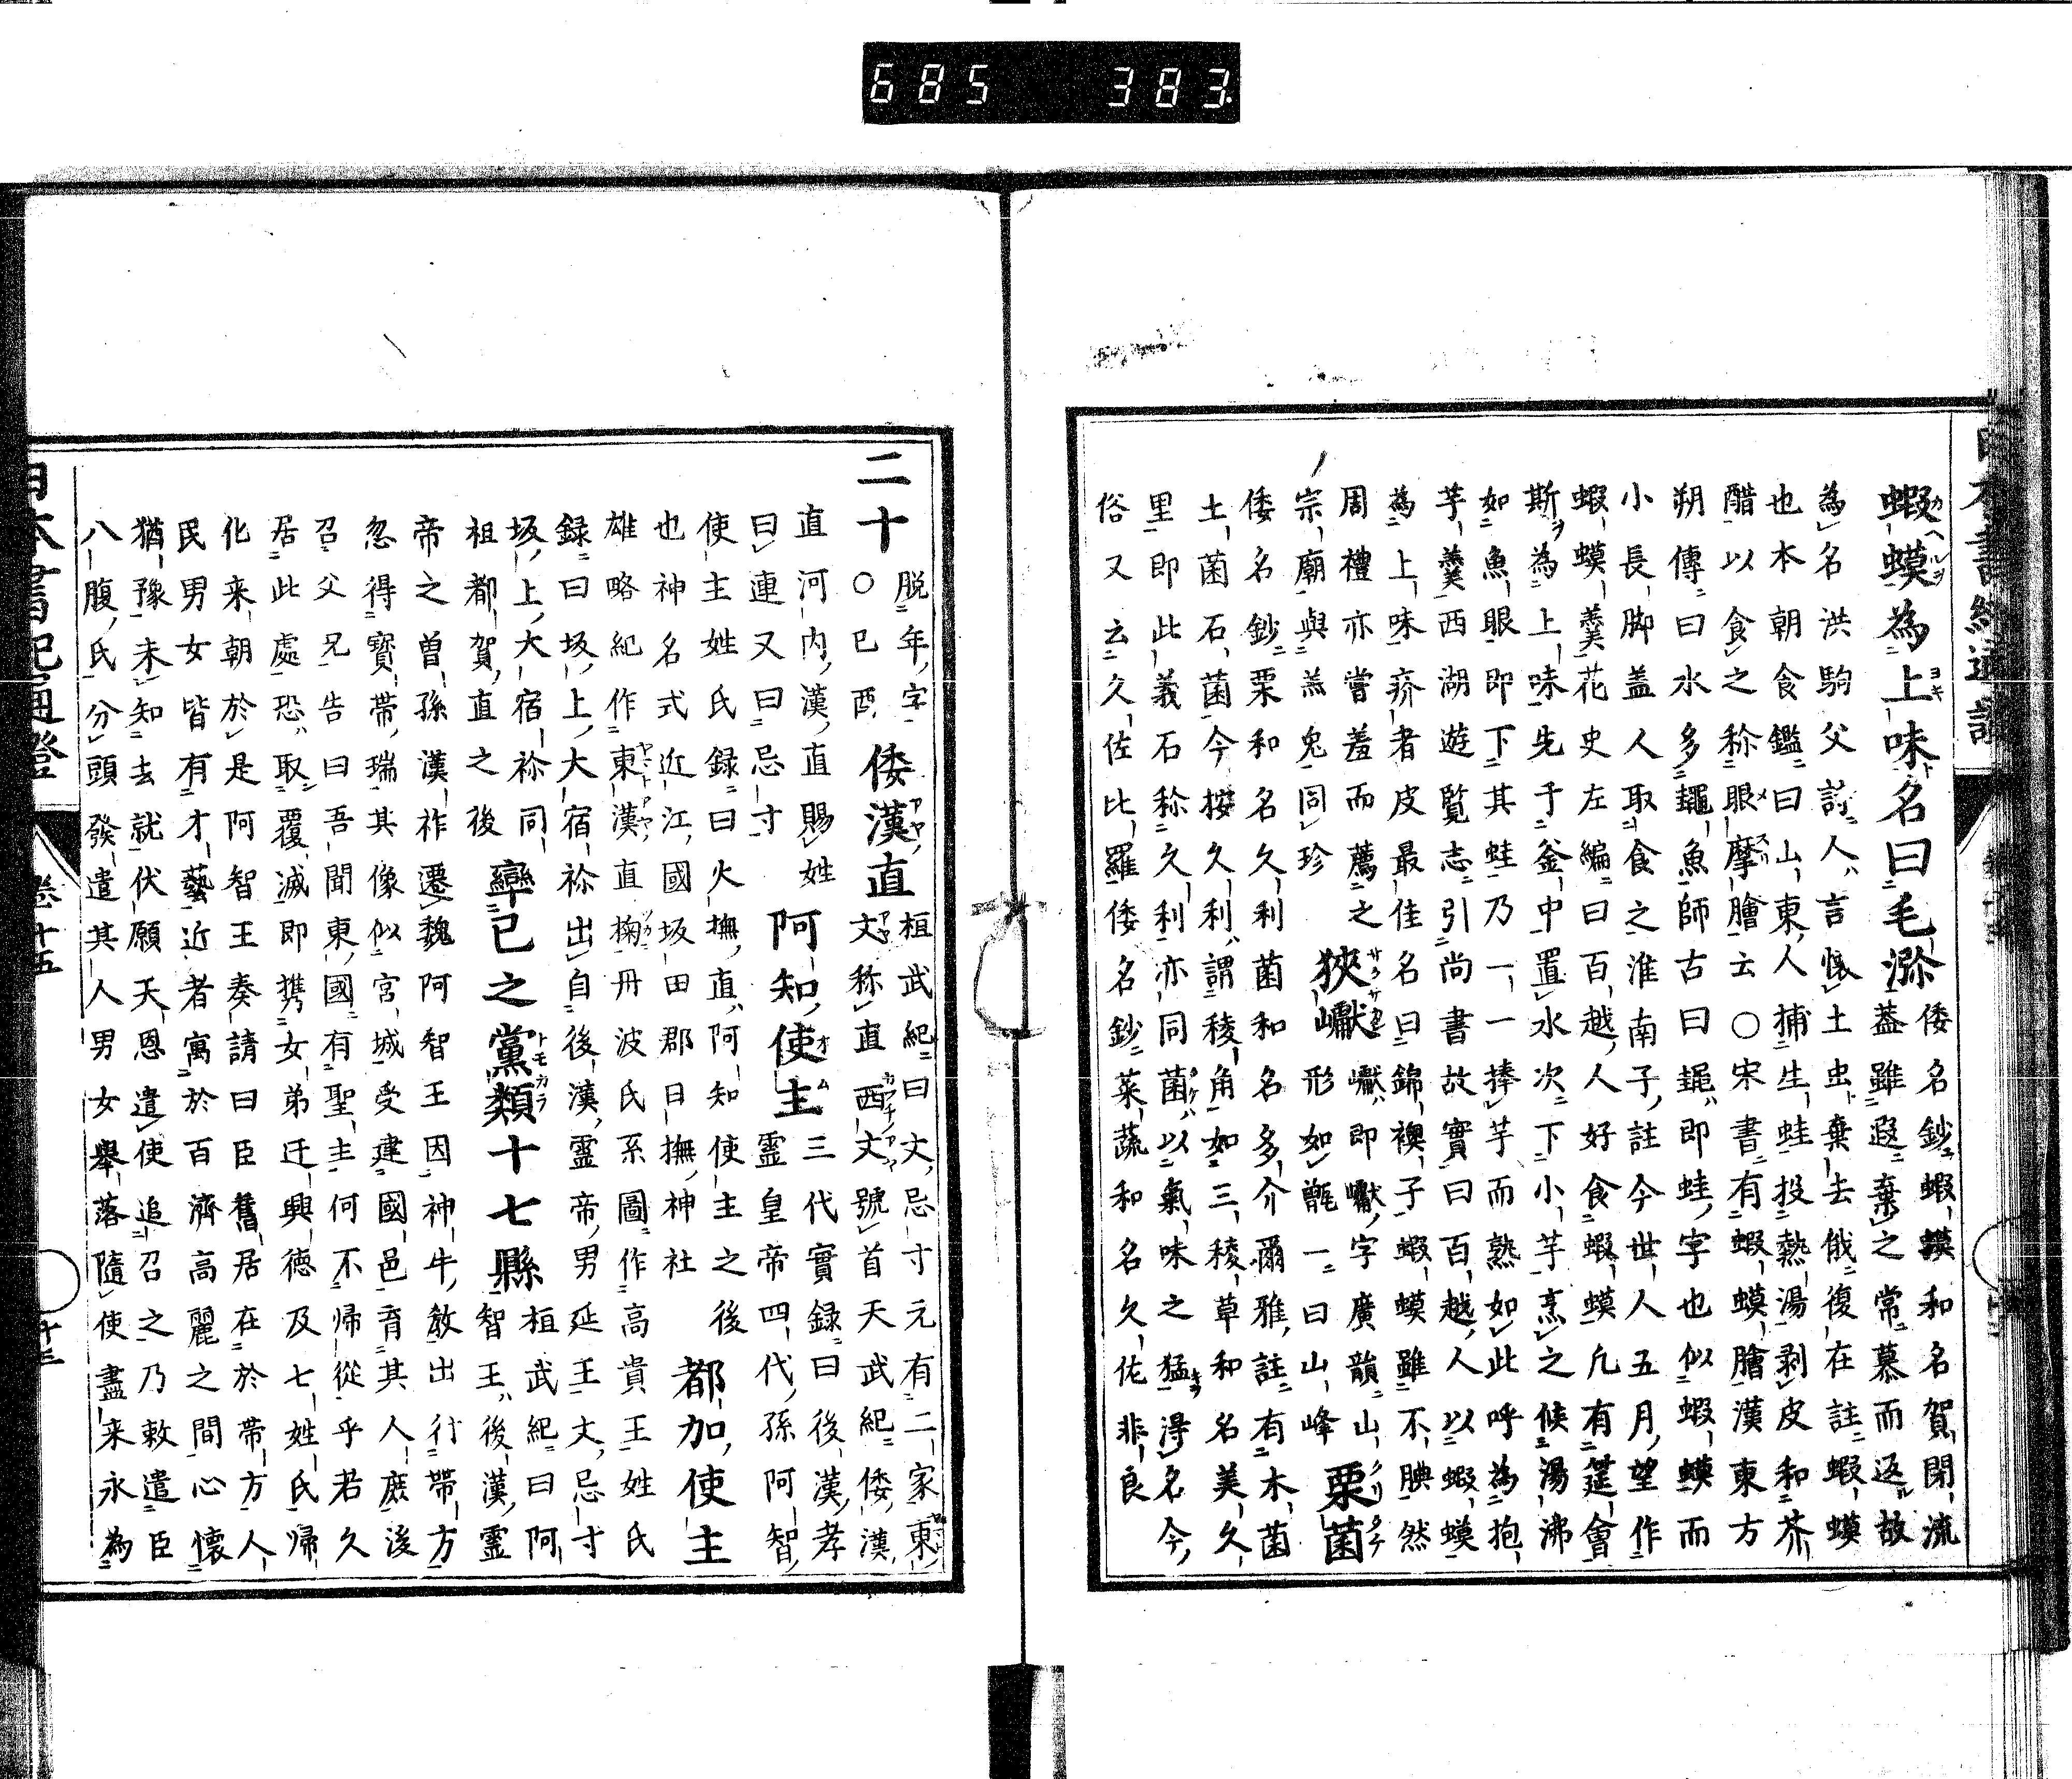 685 383
日本書紀通證
蝦蟆為上味名曰毛瀰
倭名鈔蝦蟆和名賀閇流
葢雖遐棄之常慕而返故
為名洪駒父詩人言懷土虫棄去俄復在註蝦蟆
也本朝食鑑曰山東人捕生蛙投熱湯剥皮和芥
醋以食之称眼摩膾云○宋書有蝦蟆膾漢東方
朔傳曰水多䵷魚師古曰䵷即蛙字也似蝦蟆而
小長脚盖人取食之淮南子註今世人五月望作
蝦蟆羹花史左編曰百越人好食蝦蟆凡有筵會
斯為上味先于釜中置水次下小芋烹之候湯沸
如魚眼即下其蛙乃一一捧芋而熟如此呼為抱
芋羹西湖遊覧志引尚書故實曰百越人以蝦蟆
為上味疥者皮最佳名曰錦襖子蝦蟆雖不腆然
周禮亦嘗羞而薦之
宗廟與羔兔同珍
狹巘
巘即巘字廣韻山
形如甑一曰山峰
栗菌
倭名鈔栗和名久利菌和名多介爾雅註有木菌
土菌石菌今按久利謂稜角如三稜草和名美久
里即此義石称久利亦同菌以氣味之猛淂名今
俗又云久佐比羅倭名鈔菜蔬和名久佐非良
二十
脱年字
○己酉
倭漢直
桓武紀曰文忌寸元有二家東
文称直西文號首天武紀倭漢
直河内漢直賜姓
曰連又曰忌寸
阿知使主
三代實録曰後漢孝
靈皇帝四代孫阿智
使主姓氏録曰火撫直阿知使主之後
也神名式近江國坂田郡日撫神社
都加使主
雄略紀作東漢直掬丹波氏系圖作高貴王姓氏
録曰坂上大宿祢出自後漢靈帝男延王丈忌寸
坂上大宿祢同
祖都賀直之後
率己之黨類十七縣
桓武紀曰阿
智王後漢靈
帝之曽孫漢祚遷魏阿智王因神牛教出行帶方
忽得寳帶瑞其像似宮城受建國邑育其人庶後
召父兄告曰吾聞東國有聖主何不帰從乎若久
居此處恐取覆滅即携女弟迂興德及七姓氏帰
化来朝於是阿智王奏請曰臣舊居在於帶方人
民男女皆有才藝近者寓於百濟高麗之間心懷
猶豫未知去就伏願天恩遣使追召之乃敕遣臣
八腹氏分頭發遣其人男女舉落隨使盡来永為
日本書紀通證 卷十五 十三